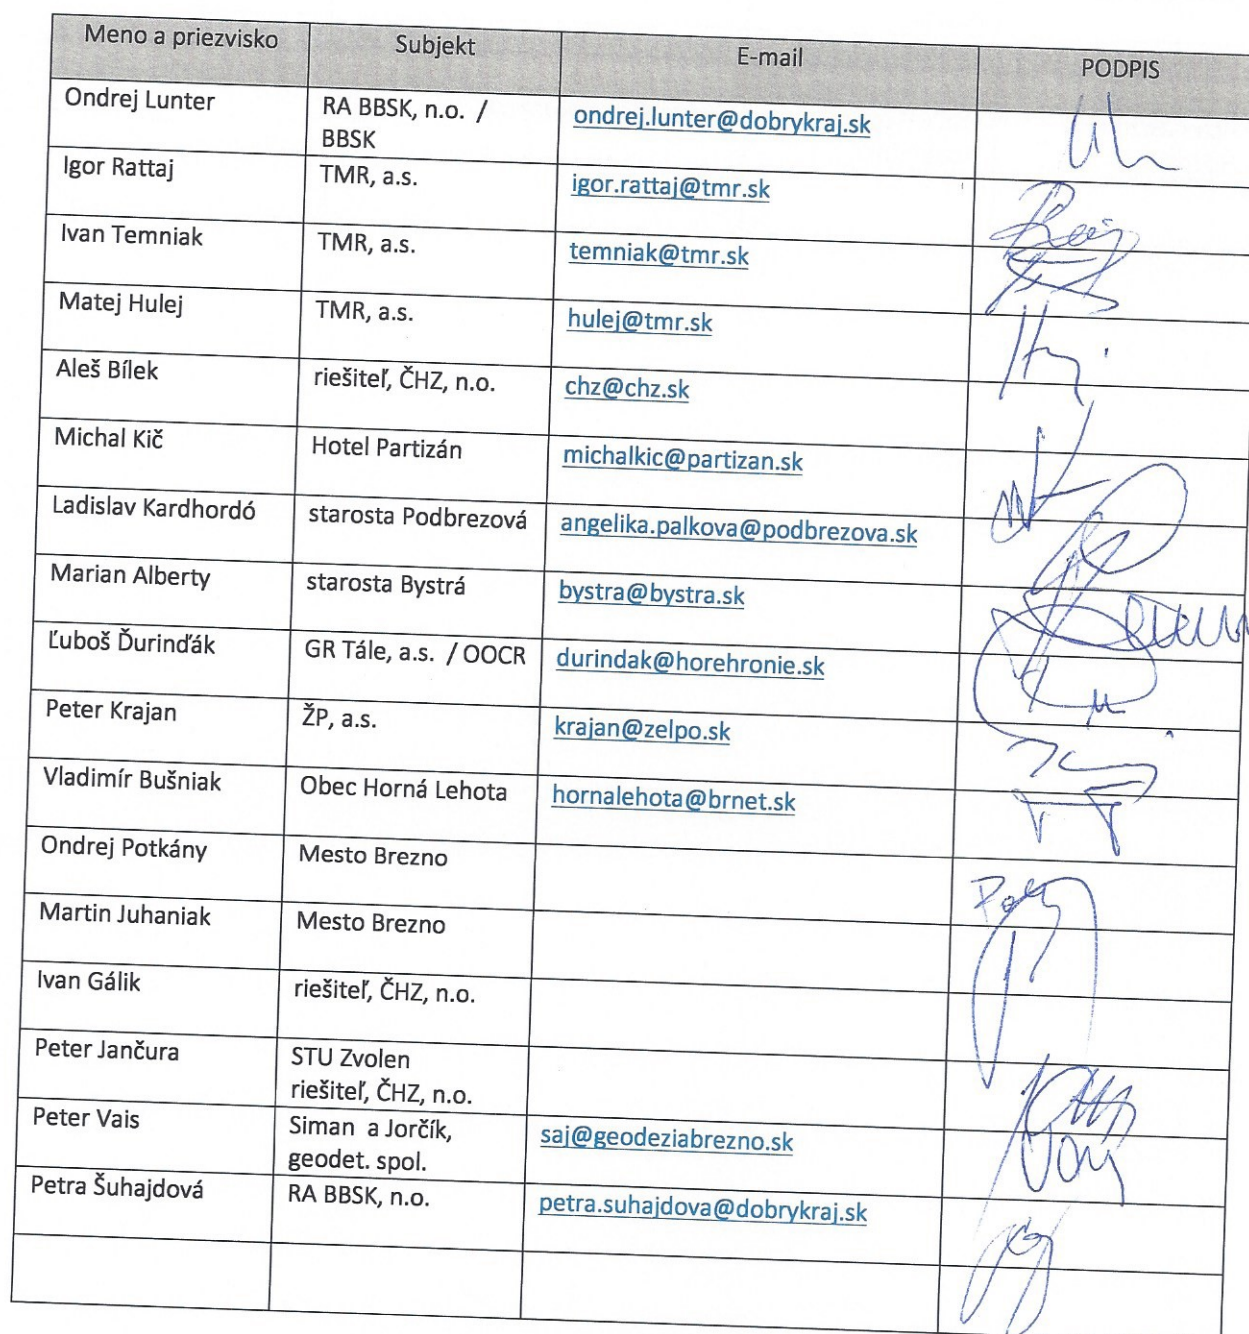 Meno a priezvisko Subjekt E-mail PODPIS
Ondrej Lunter RA BBSK, n.o. / ondrej.lunter@dobrykraj.sk
BBSK
Igor Rattaj TMR, a.s. igor.rattaj@tmr.sk
Ivan Temniak TMR, a.s. temniak@tmr.sk
Matej Hulej TMR, a.s. hulej@tmr.sk
Aleš Bílek riešiteľ, ČHZ, n.o. chz@chz.sk
Michal Kič Hotel Partizán michalkic@partizan.sk
Ladislav Kardhordó starosta Podbrezová angelika.palkova@podbrezova.sk
Marian Alberty starosta Bystrá bystra@bystra.sk
Ľuboš Ďurinďák GR Tále, a.s. / OOCR durindak@horehronie.sk
Peter Krajan ŽP, a.s. krajan@zelpo.sk
Vladimír Bušniak Obec Horná Lehota hornalehota@brnet.sk
Ondrej Potkány Mesto Brezno
Martin Juhaniak Mesto Brezno
Ivan Gálik riešiteľ, ČHZ, n.o.
Peter Jančura STU Zvolen
riešiteľ, ČHZ, n.o.
Peter Vais Siman a Jorčík, saj@geodeziabrezno.sk
geodet. spol.
Petra Šuhajdová RA BBSK, n.o. petra.suhajdova@dobrykraj.sk